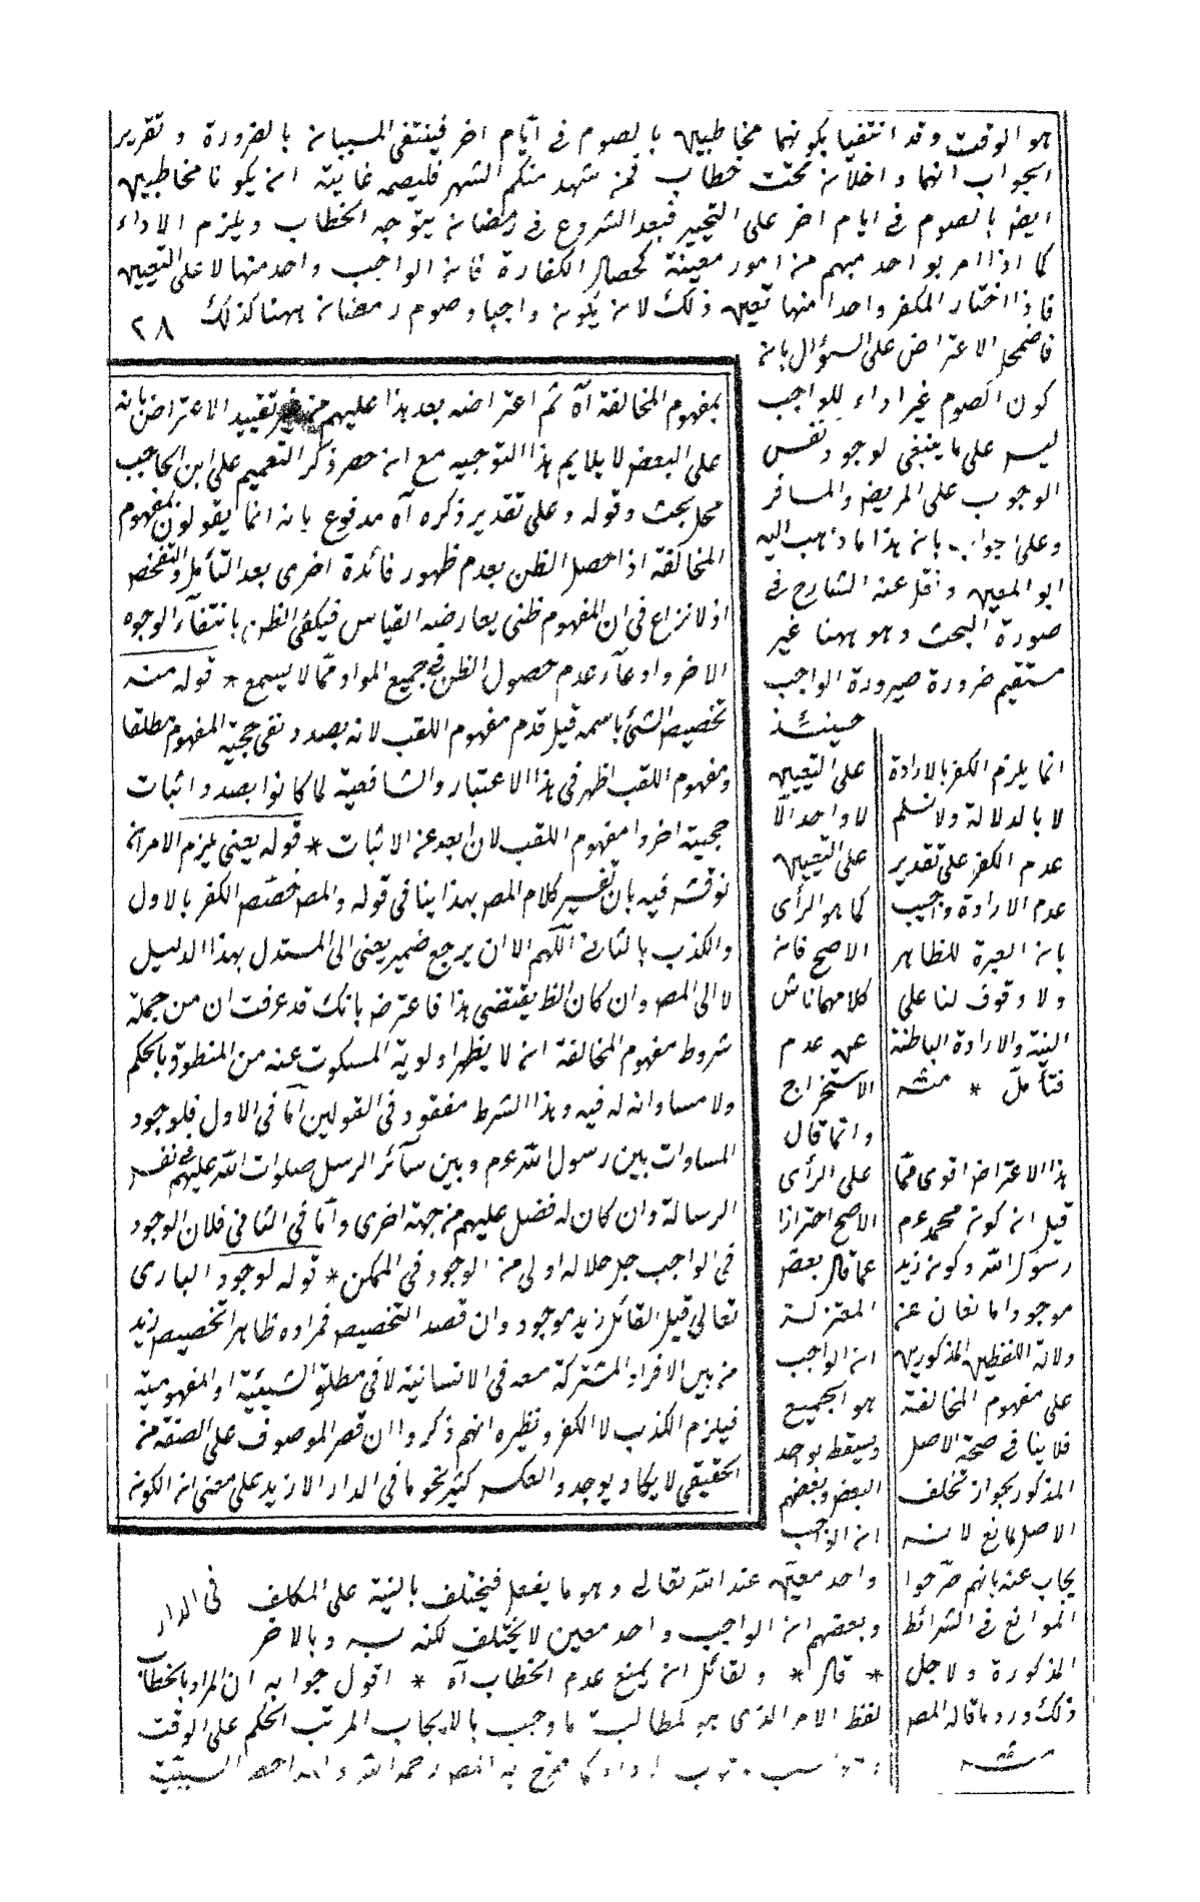 هو الوقت وقد انتفيا بكونهما مخاطبين بالصوم فى ايّام اخر فينتفى المسببان بالضرورة و تقرير
الجواب انهما داخلان تحت خطاب فمن شهد منكم الشهر فليصمه غايته ان يكونا مخاطبين
ايضا بالصوم فى ايام اخر على التخيير فبعد الشروع فى رمضان يتوجه الخطاب ويلزم الاداء
كما اذا امر بواحد مبهم من امور معينة كخصال الكفارة فان الواجب واحد منها لا على التعيين
فاذا اختار المكفر واحدا منها تعين ذلك لان يكون واجبا وصوم رمضان ههنا كذلك ٢٨
فاضمحل الاعتراض على السؤال بان
كون الصوم غير اداء للواجب
ليس على ما ينبغى لوجود نفس
الوجوب على المريض والمسافر
وعلى جوابه بان هذا ما ذهب اليه
ابو المعين ونقل عنه الشارح فى
صورة البحث وهو ههنا غير
مستقيم ضرورة صيرورة الواجب
حينئذ
على التعيين
لا واحد الّا
على التعيين
كما هو الرأى
الاصح فان
كلامهما ناش
عن عدم
الاستخراج
وانما قال
على الرأى
الاصح احترازا
عما قال بعض
المعتزلة
ان الواجب
هو الجميع
ويسقط بوجد
البعض وبعضهم
ان الواجب
واحد معين عند الله تعالى وهو ما يفعل فيختلف بالنية على المكلف
وبعضهم ان الواجب واحد معين لا يختلف لكنه به وبالاخر
* قال * ولقائل ان يمنع عدم الخطاب آه * اقول جوابه ان المراد بالخطاب
لفظ الامر الذى هو لمطالبة ما وجب بالايجاب المرتب الحكم على الوقت
كما صرح به المصر رحمه الله السببية
بمفهوم المخالفة آه ثم اعتراضه بعد هذا عليهم من غير تقييد الاعتراض بانه
على البعض لا يلايم هذا التوجيه مع ان حصر ذكر التعميم على ابن الحاجب
محل بحث وقوله وعلى تقدير ذكره آه مدفوع بانه انما يقولون بمفهوم
المخالفة اذا حصل الظن بعدم ظهور فائدة اخرى بعد التأمل والتفحص
اذ لا نزاع فى ان المفهوم ظنى يعارضه القياس فيكفى الظن بانتفاء الوجوه
الاخر وادعاء عدم حصول الظن فى جميع المواد ممّا لا يسمع * قوله منه
تخصيص الشئ باسمه قيل قدم مفهوم اللقب لانه بصدد نفى حجية المفهوم مطلقا
ومفهوم اللقب اظهر فى هذا الاعتبار والشافعية لما كانوا بصدد اثبات
حجيته اخروا مفهوم اللقب لانه ابعد عن الاثبات * قوله يعنى يلزم الامران
نوقش فيه بان تفسير كلام المصر بهذا ينافى قوله والمصر خصّص الكفر بالاول
والكذب بالثانى اللّهم الا ان يرجع ضمير يعنى الى المستدل بهذا الدليل
لا الى المصر وان كان الظ يقتضى هذا فاعترض بانك قد عرفت ان من جملة
شروط مفهوم المخالفة ان لا يظهر اولوية المسكوت عنه من المنطوق بالحكم
ولا مساواته له فيه وهذا الشرط مفقود فى القولين امّا فى الاول فلوجود
المساوات بين رسول الله عم وبين سآئر الرسل صلوات الله عليهم فى نفس
الرسالة وان كان له فضل عليهم من جهة اخرى وامّا فى الثانى فلان الوجود
فى الواجب جل جلاله اولى من الوجود فى الممكن * قوله لوجود البارى
تعالى قيل القائل زيد موجود وان قصد التخصيص فمراده ظاهرا تخصيص زيد
من بين الافراد المشتركة معه فى الانسانية لا فى مطلق الشيئية او المفهومية
فيلزم الكذب لا الكفر ونظيره انهم ذكروا ان قصر الموصوف على الصفة من
الحقيقى لا يكاد يوجد والعكس كثير نحو ما فى الدار الا زيد على معنى ان الكون
فى الدار
انما يلزم الكفر بالارادة
لا بالدلالة ولا نسلم
عدم الكفر على تقدير
عدم الارادة واجيب
بان العبرة للظاهر
ولا وقوف لنا على
النية والارادة الباطنة
فتأمل * منه
هذا الاعتراض اقوى ممّا
قيل ان كون محمد عم
رسول الله وكون زيد
موجودا مانعان عن
دلالة اللفظين المذكورين
على مفهوم المخالفة
فلا ينافى صحة الاصل
المذكور بجواز تخلف
الاصل لمانع لانه
يجاب عنه بانهم صرّحوا
الموانع فى الشرائط
المذكورة ولاجل
ذلك ورد ما قاله المصر
منه